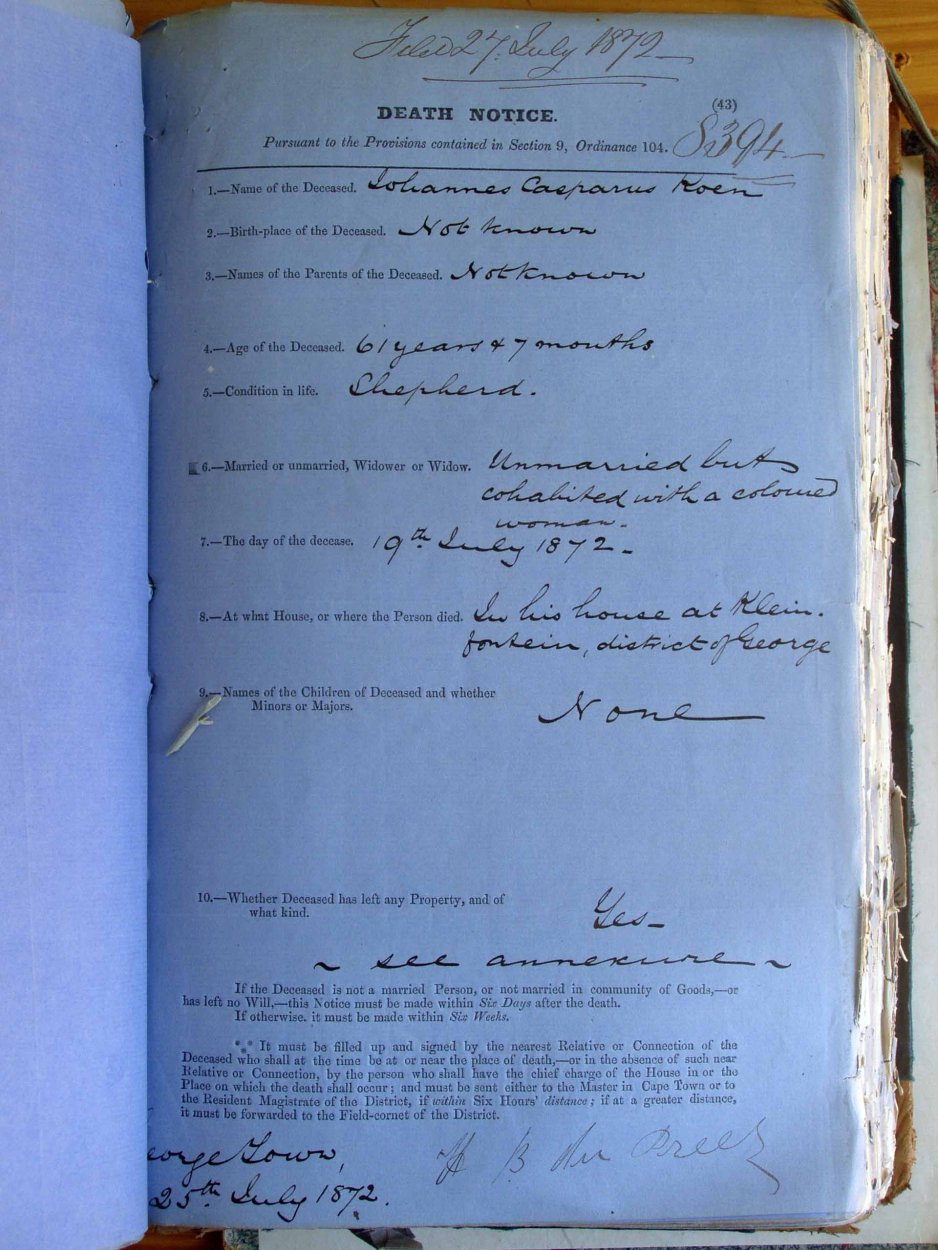 Filed 27 July 1872
(43)
DEATH NOTICE.
Pursuant to the Provisions contained in Section 9, Ordinance 104.
8394
1.—Name of the Deceased. Johannes Casparus Koen
2.—Birth-place of the Deceased. Not known
3.—Names of the Parents of the Deceased. Not known
4.—Age of the Deceased. 61 years & 7 months
5.—Condition in life. Shepherd.
6.—Married or unmarried, Widower or Widow. Unmarried but
cohabited with a coloured
woman.
7.—The day of the decease. 19th July 1872
8.—At what House, or where the Person died. In his house at Klein.
fontein, district of George
9.—Names of the Children of Deceased and whether
Minors or Majors. None
10.—Whether Deceased has left any Property, and of
what kind. Yes—
~ see annexure ~
If the Deceased is not a married Person, or not married in community of Goods,—or
has left no Will,—this Notice must be made within Six Days after the death.
If otherwise. it must be made within Six Weeks.
It must be filled up and signed by the nearest Relative or Connection of the
Deceased who shall at the time be at or near the place of death,—or in the absence of such near
Relative or Connection, by the person who shall have the chief charge of the House in or the
Place on which the death shall occur; and must be sent either to the Master in Cape Town or to
the Resident Magistrate of the District, if within Six Hours' distance; if at a greater distance,
it must be forwarded to the Field-cornet of the District.
eorge Town,
25th July 1872.
B. du Preez